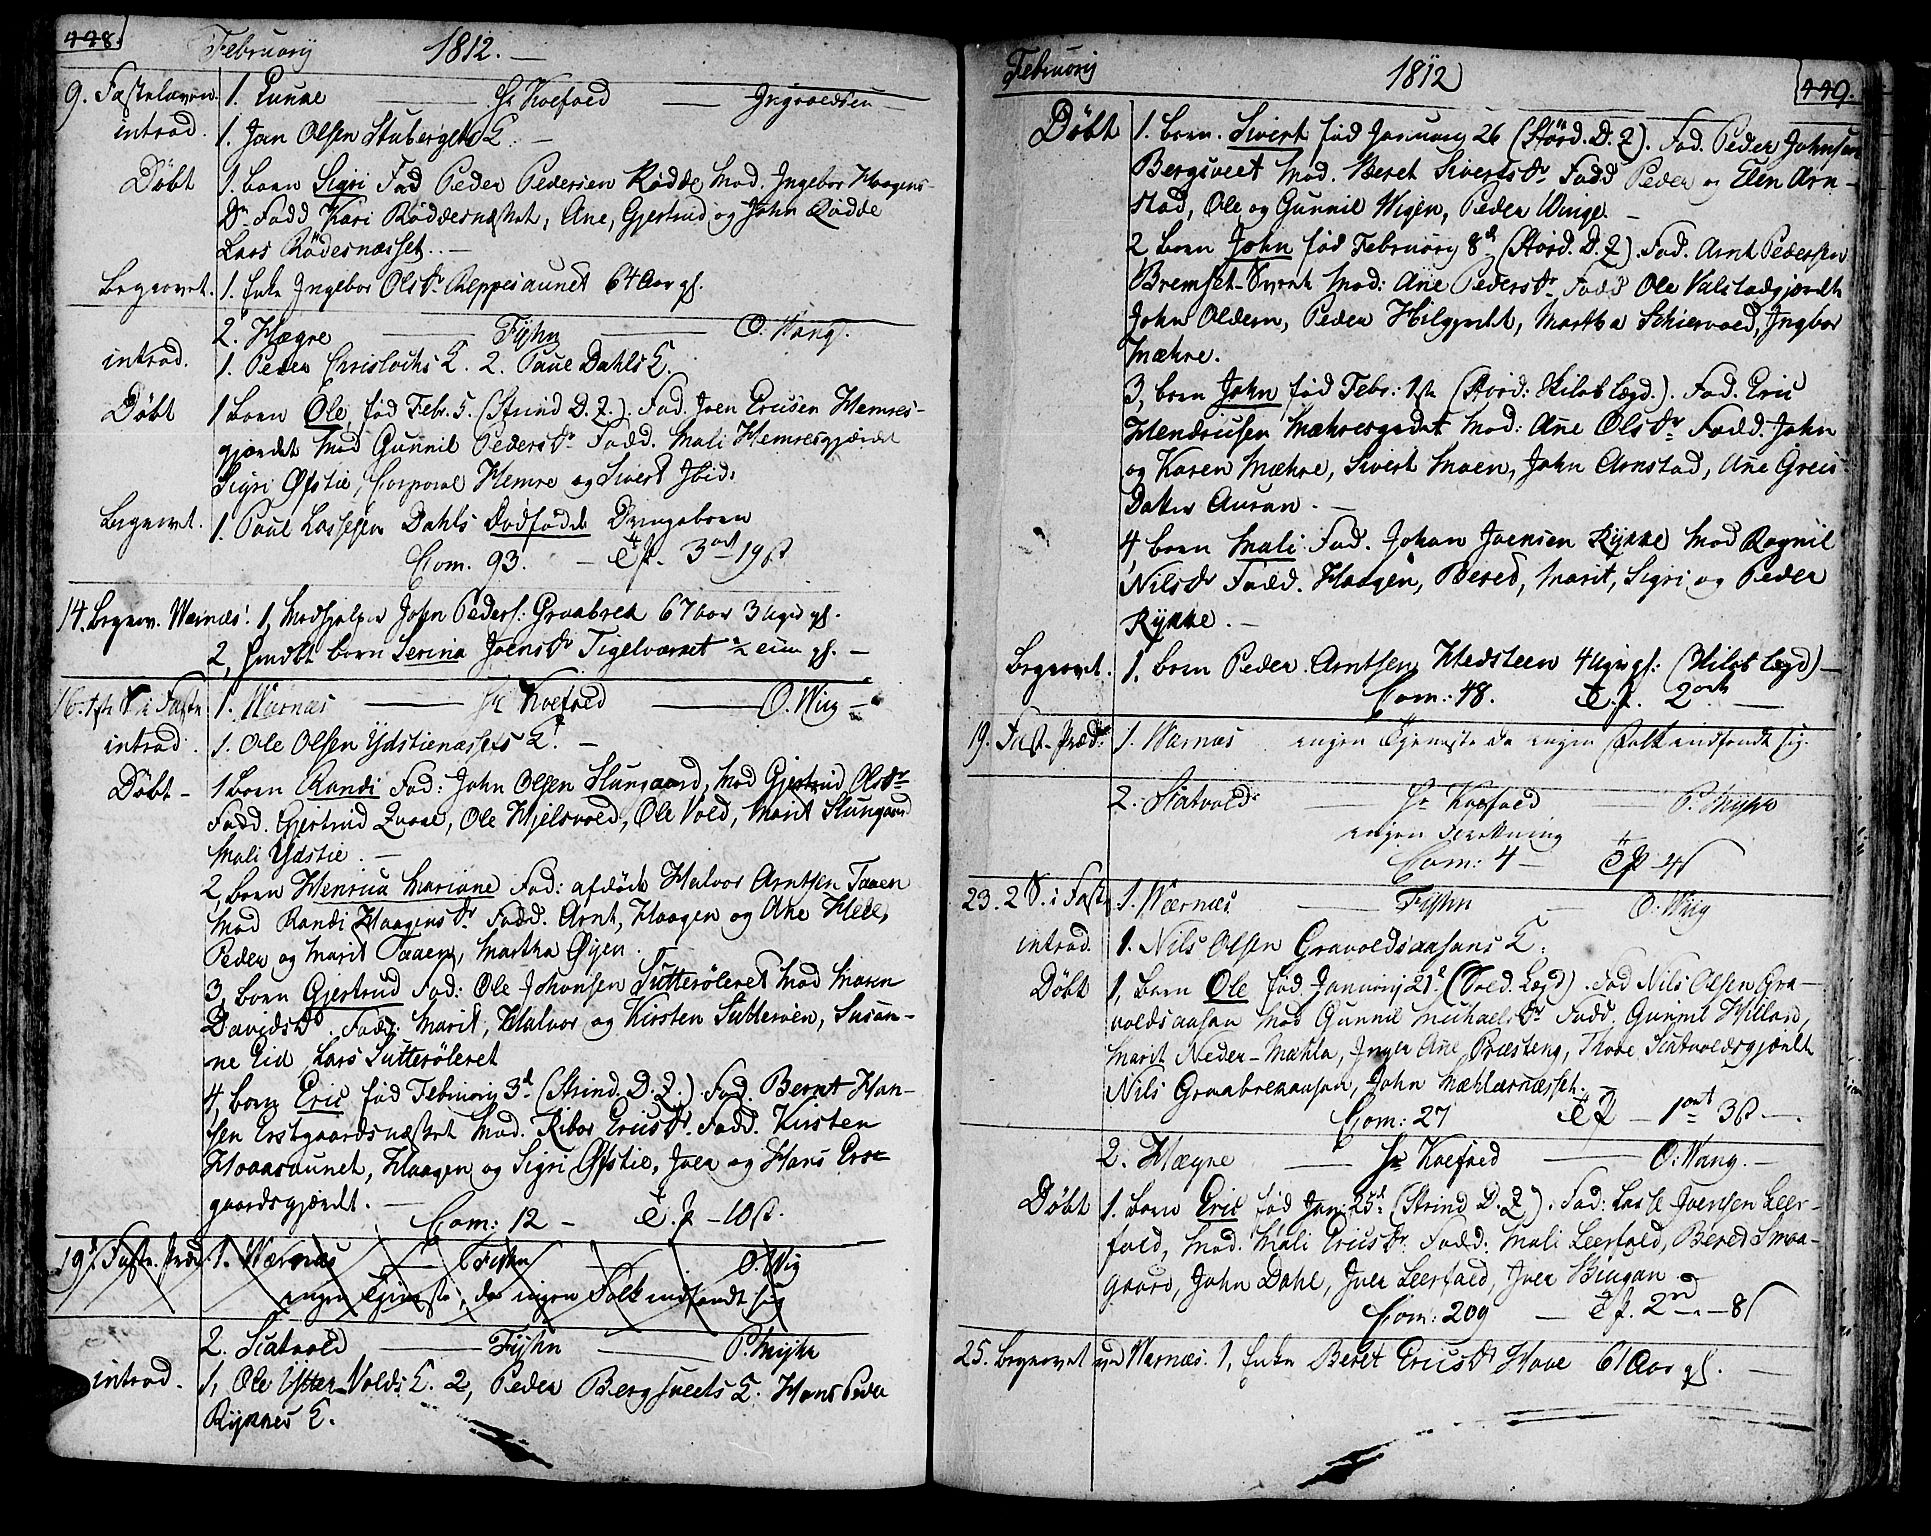 448.
Februarij 1812. —
9. Fastelavn. 1. Lunke — Hr Koefoed — Ingvoldsen
introd. 1. Jon Olsen Stubergets K. —
Døbt 1. barn Sigri Fad Peder Pedersen Rødde Mod. Ingebor Haagens-
Dr Fadd Kari Røddesnæsset, Ane, Gjertrud og John Rødde
Lars Rødesnæsset. —
Begravet. 1. Enke Ingebor Olsdr Reppesaunet 64 Aar gl.
2. Hægre — Fijhn — O. Wang.
introd. 1. Peder K. 2. Paul Dahls K.
Døbt 1 barn Ole, fød Febr. 5. (Strind D. 2.). Fad. Joen Ericsen Hemres-
gjærdet Mod Gunnil Pedersdr Fadd. Mali Hemresgjærdet
Sigri Øfstie, Corporal Hemre og Sivert Ibid.
Begravet. 1. Paul Lassesen Dahls Dødfødde Drengebarn
Com. 93. — 3 ort 19 s
14. Begrav. Wærnæs. 1, John Peders: Graabrek 67 aar 3 uger gl.
2, barn Serina Joensdr Tigelværket ½ gl. —
16. 1ste S. i Faste 1. Wærnæs — Hr Koefoed — O. Wiig —
introd. 1. Ole Olsen Ydstienæssets K. —
Døbt — 1 barn Randi Fad: John Olsen Slungaard, Mod Gjertrud Olsdr
Fadd. Gjertrud , Ole Hjelsvold, Ole Vold, Marit Slungaard
Mali Ydstie. —
2, barn Henrica Mariane Fad: afdøde Halvor Arntsen
Mod Randi Haagensdr Fadd. Arnt, Haagen og Ane Helle,
Peder og Marit , Martha Øyen.
3, barn Gjertrud Fad: Ole Johansen Sutterøleret Mod Maren
Davidsdr. Fadd: Marit, Halvor og Kirsten Sutterøen, Susan-
ne Eid Lars Sutterøleret
4, barn Eric fød Februarij 3d (Strind. D. 2.) Fad. Bernt Han-
sen Erstgaardsnæsset Mod. Ribor Ericsdr. Fadd. Kirsten
Hoaasaunet, Haagen og Sigri Øfstie, Iver og Hans Ers-
gaardsgjærdet. —
Com: 12 — — 10 s.
19d Faste. Præd. 1. Wærnæs — Fijhn — O. Wiig
ingen Tjeneste, da ingen Folk indfandt sig
2. Skatvold — Fijhn — P. Mijhr
introd. 1, Ole Ytter-Volds K. 2, Peder Bergsveets K. Hans Peder
Rykkes K.
Februarij 1812 449.
Døbt 1. barn. Sivert fød January 26 (Størd. D. 2). Fad. Peder Johnsen
Bergsveet Mod. Beret Sivertsdr Fadd Peder og Elen Arn-
stad, Ole og Gunnil Wigen, Peder Winge. —
2 barn John fød Februarij 8d (Størd. D. 2). Fad. Arnt Pedersen
Bremset-Svent Mod: Ane Pedersdr Fadd Ole Valstadgjærdet
John Oldern, Peder , Martha Schiervold, Ingbor
Mæhre.
3, barn John fød Febr: 1ste (Størd: Skilob Lægd.). Fad. Eric
Hendricsen Mæhresgerdet Mod: Ane Olsdr Fadd. John
og Karen Mæhre, Sivert Moen, John Arnstad, Ane Greis
Datter Auran. —
4, barn Mali Fad. Johan Joensen Rykke Mod Ragnil
Nilsdr Fadd. Haagen, Bered, Marit, Sigri og Peder
Rykke. —
Begravet. 1. barn Peder Arntsen Hedsteen 4 uger gl: (Skilob Lægd) —
Com: 48. 2 ort
19. Fast. Præd: 1. Wærnæs ingen Tjeneste da ingen Folk indfandt sig.
2. Skatvold — Hr Koefoed — P. Mijhr
ingen
Com: 4 — 4 s
23. 2 S. i Faste 1. Wærnæs. — Fijhn — O. Wiig
introd. 1. Nils Olsen Gravoldsaasens K.
Døbt 1, barn Ole fød Januarij 21d (Sold. Lægd). Fad Nils Olsen Gra-
voldsaasen Mod Gunnil Michaelsdr Fadd. Gunnil Hillard,
Marit Neder-Mæhla, Inger Ane Præsteng, Thore Skatvoldsgjærdet
Nils Graabrekaasen, John Mæhlarnæsset.
Com: 27 — 1 ort 3 s —
2. Hægre — Hr Koefoed — O. Wang. —
Døbt 1. barn Eric fød Jan: 25d (Strind D. 2). Fad: Lasse Joensen Leer-
fald, Mod. Mali Ericsdr Fadd: Mali Leerfald, Bered Smaa-
gaard, John Dahl, Iver Leerfald, Iver Bingan
Com: 209 — 2 — 8 s
25. Begravet ved Wærnæs. 1, Enke Beret Ericsdr Hove 61 Aar gl. —